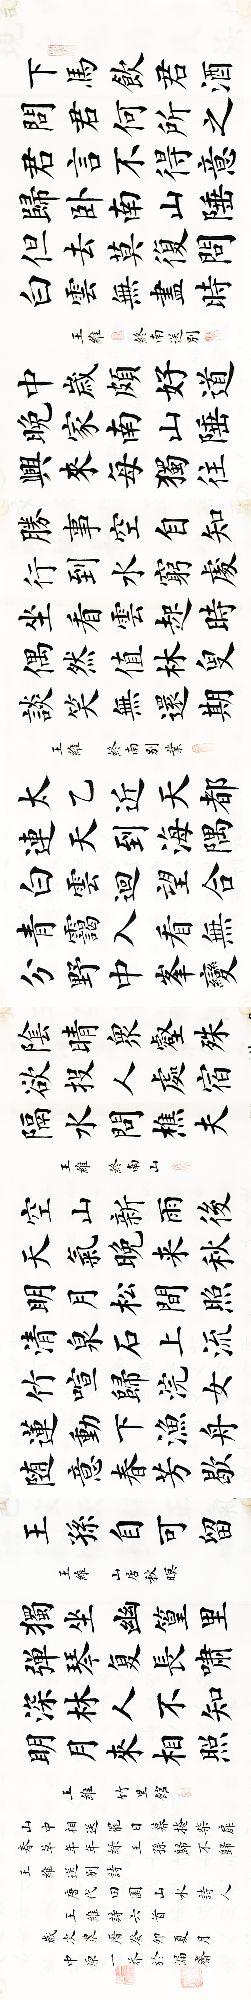 下馬飲君酒
問君何所之
君言不得意
歸卧南山陲
但去莫復問
白雲無盡時
王維 終南送別
中歲頗好道
晚家南山陲
興來每獨往
勝事空自知
行到水窮處
坐看雲起時
偶然值林叟
談笑無還期
王維 終南別業
太乙近天都
連天到海隅
白雲迴望合
青靄入看無
分野中峯變
陰晴衆壑殊
欲投人處宿
隔水問樵夫
王維 終南山
空山新雨後
天氣晚来秋
明月松間照
清泉石上流
竹喧歸浣女
蓮動下漁舟
随意春芳歇
王孫自可留
王維 山居秋暝
獨坐幽篁里
彈琴復長嘯
深林人不知
明月來相照
王維 竹里館
山中相送罷日暮掩柴扉
春草年年綠王孫歸不歸
王維送別詩田園山水詩人
唐代王維詩六首
歲次癸卯夏月